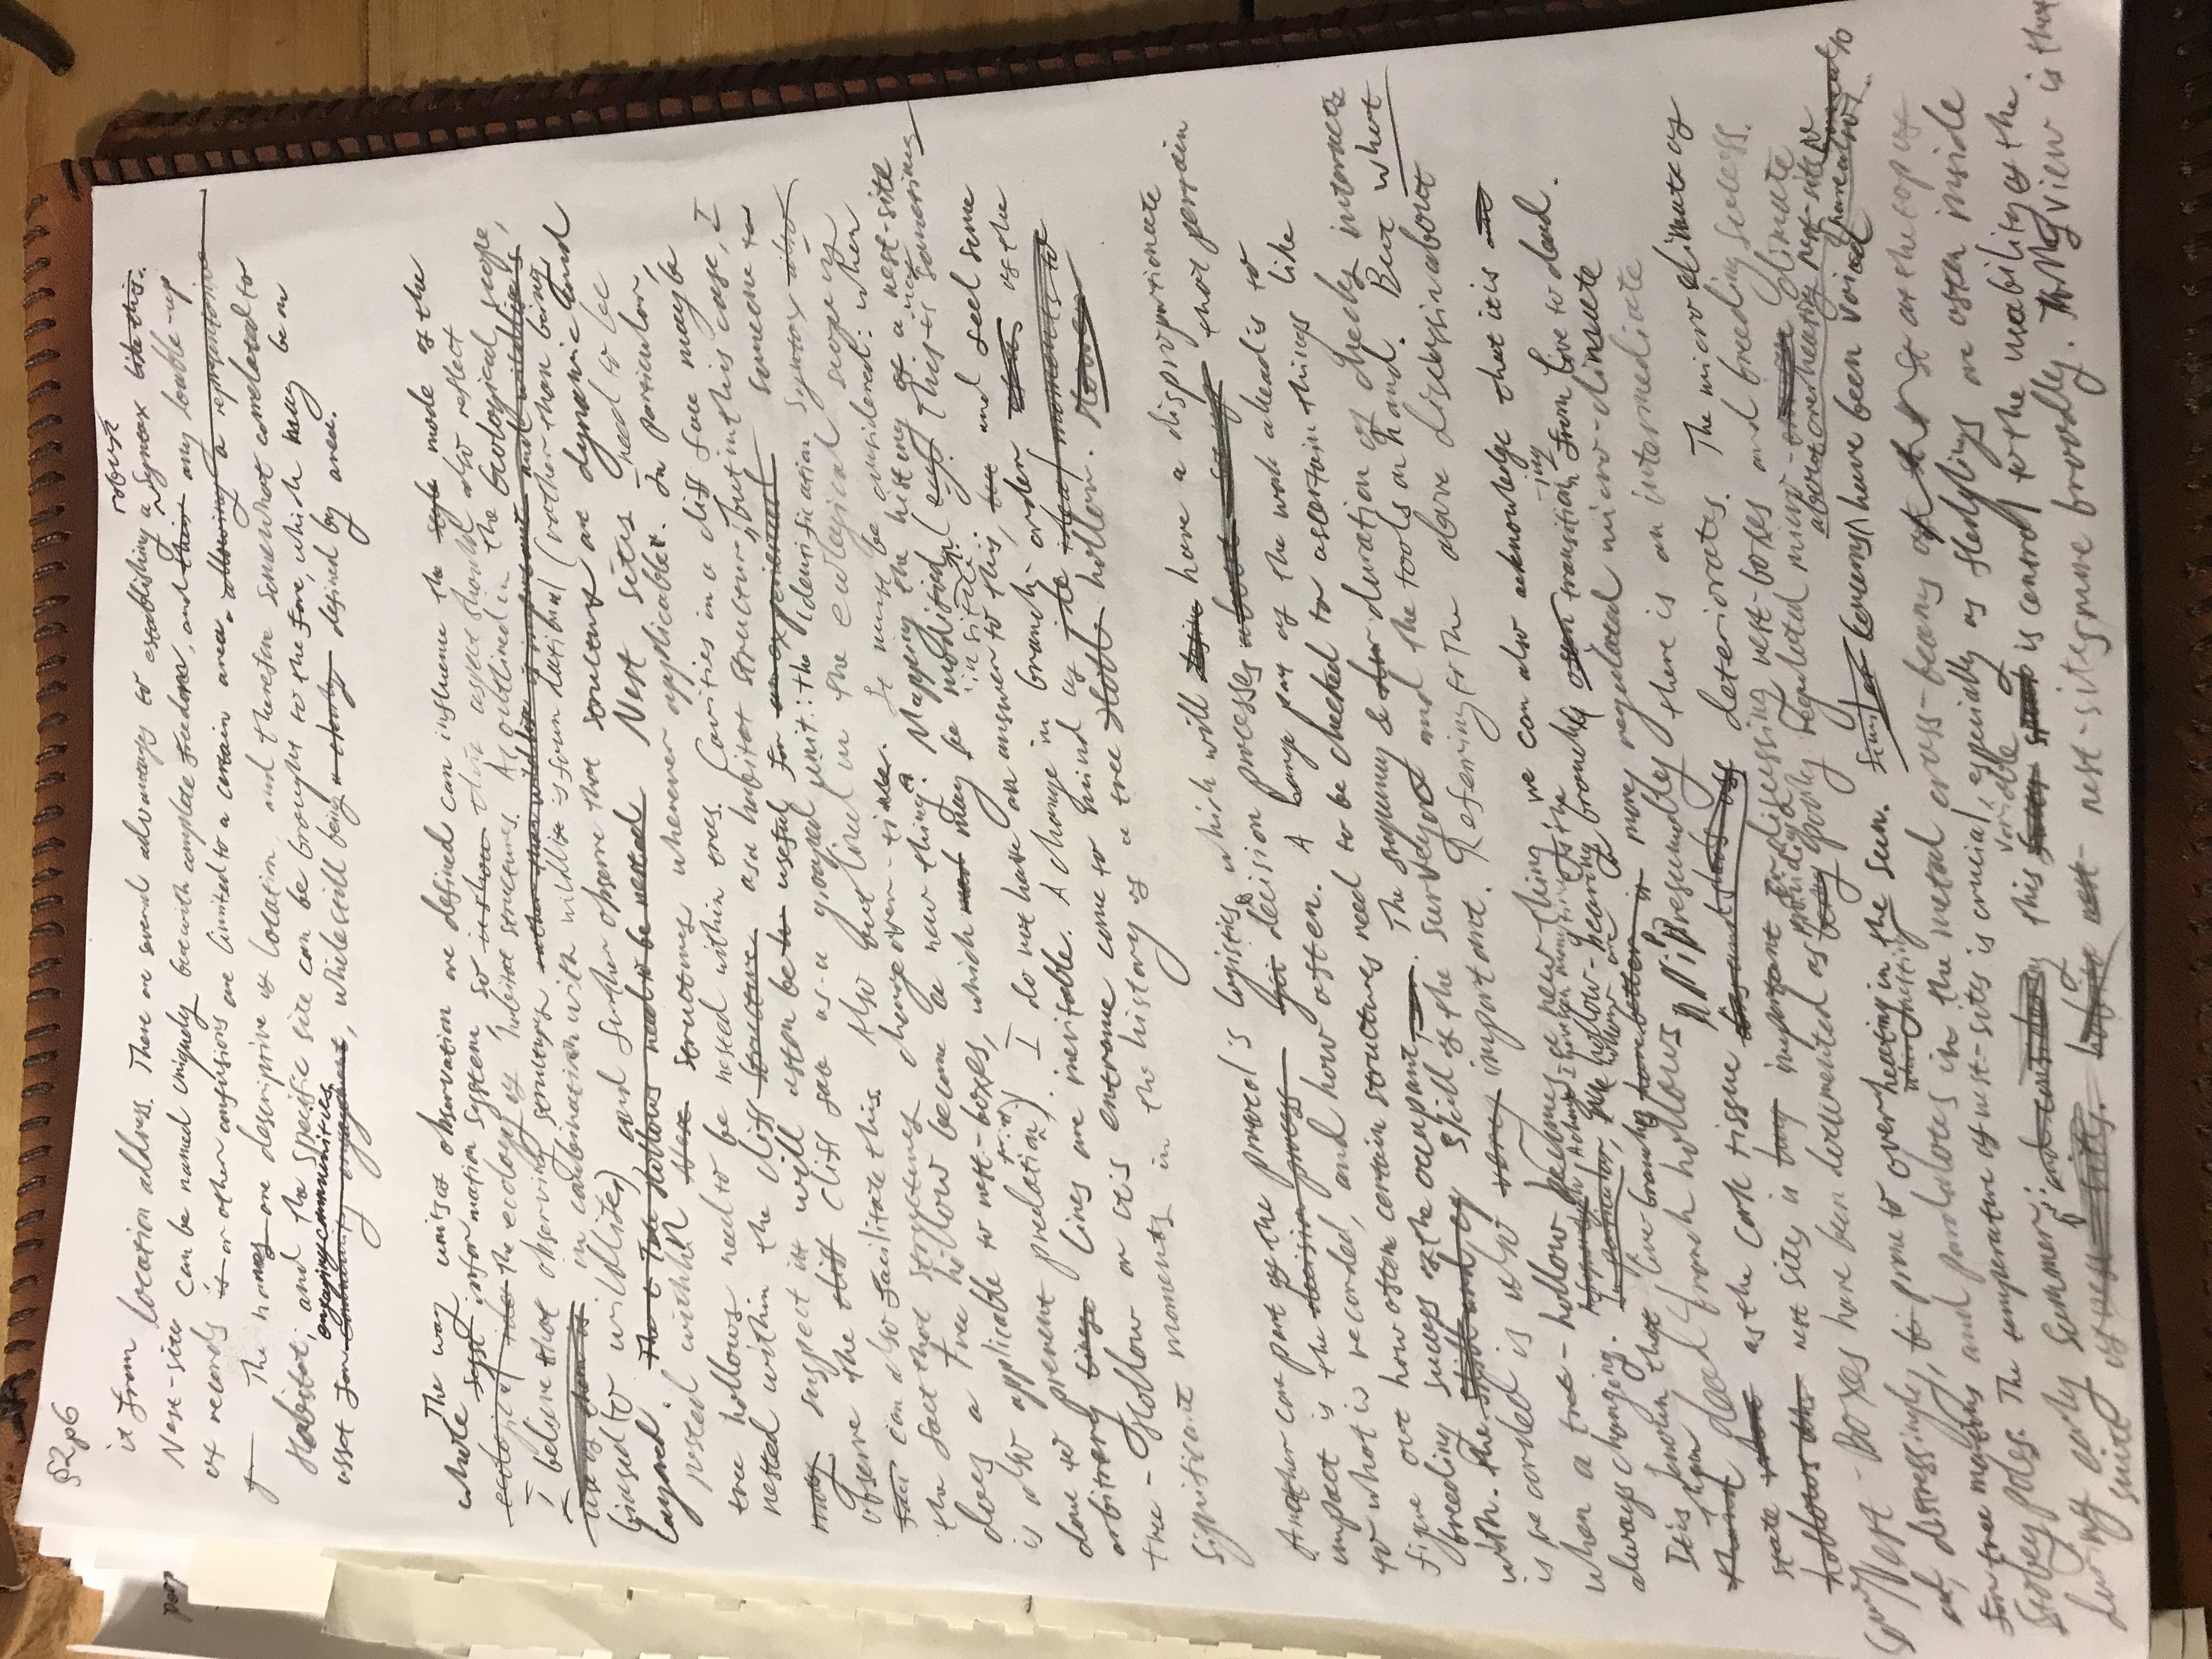 §2p6
it from location address. There are several advantages to establishing a robust syntax like this.
Nest-sites can be named uniquely but with complete freedom, and this any double-up
of records is or other confusions are limited to a certain area. allowing a representative
The names are descriptive of location, and therefore somewhat correlated to
Habitat; and the specific site can be brought to the fore, which may be an
engaging communities
asset for community engagement, while still being a clearly defined by area.
The way units of observation are defined can influence the style mode of the
whole syst information system, so it show this aspect should also reflect
ecological idea the ecology of habitat structures. As outlined in the Ecological scope,
I believe that observing structures rather than wildlife is important and wildlife's
use of them is in combination with wildlife is foundational (rather than being
biased to wildlife), and further observe that structures are dynamic and
layered. The Tree Hollows need to be nested Nest sites need to be
nested within Nest structures wherever applicable. In particular,
tree hollows need to be nested within trees. Cavities in a cliff face may be
nested within the cliff structure as a habitat structure, but in this case, I
may suspect it will often be useful for an experienced someone to
observe the cliff cliff face as a grouped unit: the identification syntax also
can also facilitate this. Also outlined in the ecological scope is
the fact that structures change over-time. It must be considered: when
does a Tree hollow become a new thing? Mapping the history of a nest-site
is also applicable to nest-boxes, which may be modified in situ (eg. This is sometimes
done to prevent predation). I do not have an answer to this, but and feel some
arbitrary lines are inevitable. A change in branch-order of the
tree-Hollow or it's entrance come to mind as ideal moments to
significant moments in the history of a tree hollow.
Another core part of the protocol's logistics, which will have a disproportionate
impact is the decision process decision processes that pertain
to what is recorded, and how often. A large part of the work ahead is to
figure out how often certain structures need to be checked to ascertain things like
breeding success of the occupant. The frequency & duration of checks interacts
with the skill of the surveyor and the tools on hand. But what
is recorded is also very important. Referring to the above discussion about
when a tree-hollow becomes a new-thing, we can also acknowledge that it is
always changing. In particular, A change I have seen many times is the hollow-bearing branch often transitioning from live to dead.
It is known that live-branch hollows are have better is more regulated micro-climate
than dead branch hollows presumably there is an intermediate
state as the cork tissue deteriorates. The micro climate of
hollows nest sites is important for discussing nest-boxes and breeding success.
Some Nest-Boxes have been documented as providing a poorly regulated micro-climate
and, distressingly, prone to overheating in the sun. Similar Concerns about overheating nest-sites have been voiced
for tree martins and pardalotes when nesting in the metal cross-beams at the top of
Stobey poles. The temperature of nest-sites is crucial, especially as fledglings are often inside
during early summer; and considering this variable is central to the usability of the
suite of nest-sites more broadly. My view is that